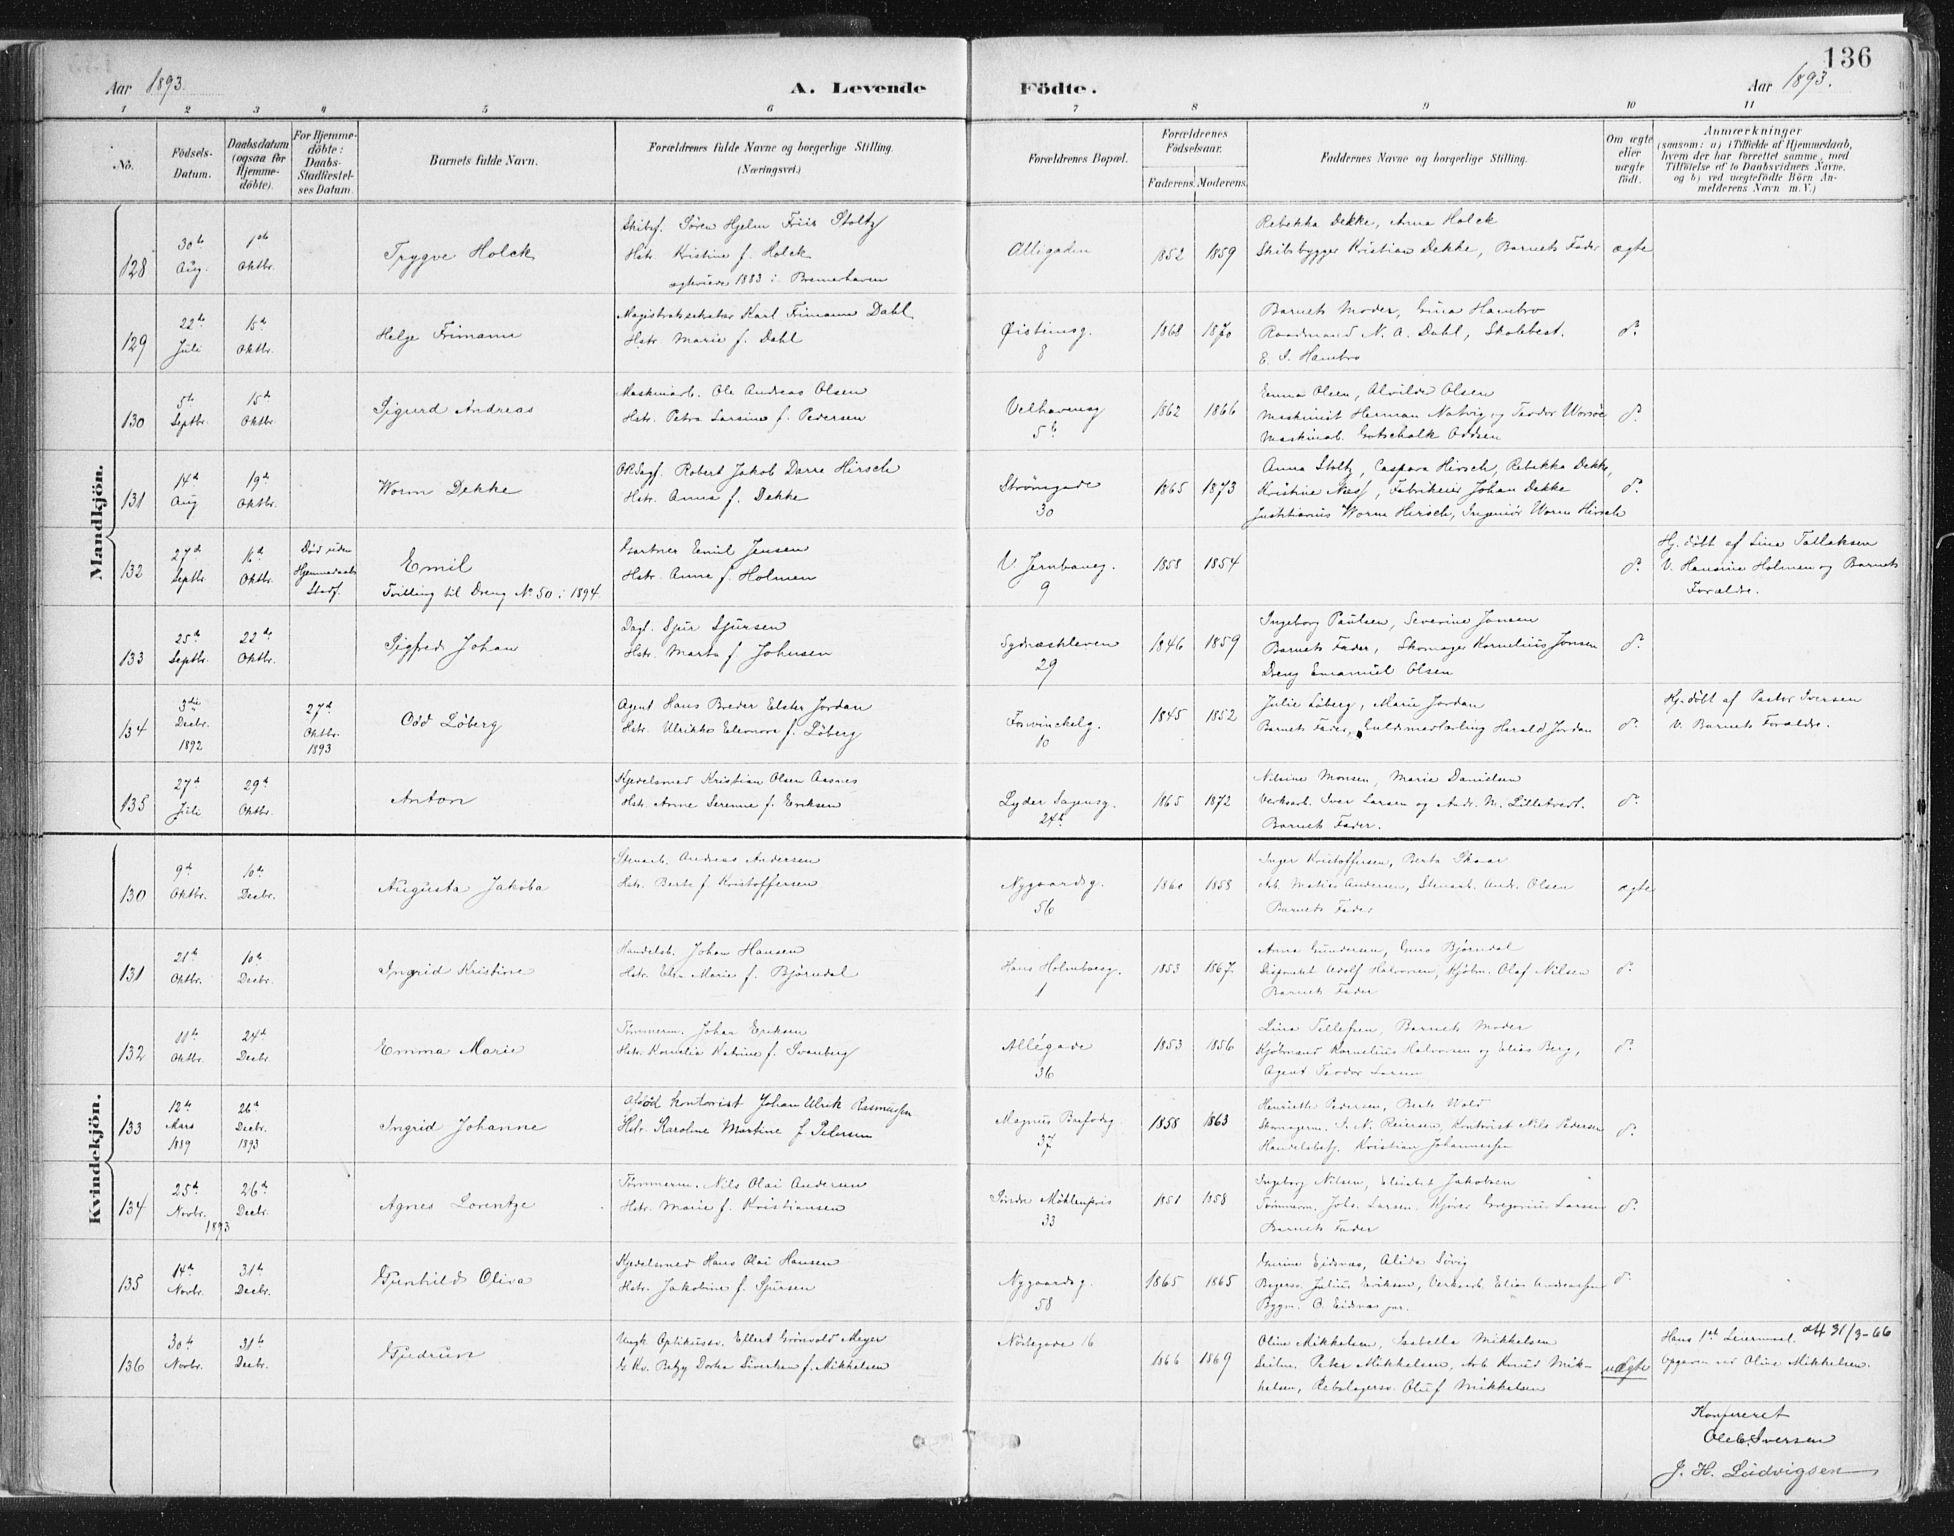 136
Aar 1893.
A. Levende Födte.
Aar 1893.
1 2 3 4 5 6 7 8 9 10 11
No.
Födsels-Datum.
Daabsdatum (ogsaa for Hjemme-döbte).
For Hjemme-döbte: Daabs-Stadfæstel-ses Datum.
Barnets fulde Navn.
Forældrenes fulde Navne og borgerlige Stilling. (Næringsvei.)
Forældrenes Bopæl.
Forældrenes Födselsaar.
Faderens. Moderens.
Faddernes Navne og borgerlige Stilling.
Om ægte eller uægte födt.
Anmærkninger
(saasom: a) i Tilfælde af Hjemmedaab, hvem der har forrettet samme, med Tilföielse af to Daabsvidners Navne, og b) ved uægtefödte Börn An-melderens Navn m. V.)
Mandkjön.
128 30te Aug. 1ste Oktbr. Trygve Holck
Skibsf. Søren Hjelm Friis Stoltz
Hstr. Kristine f. Holck
ægteviede 1883 i Bremerhaven
Allégaden 1852 1859
Rebekka Dekke, Anna Holck
Skibsbygger Kristian Dekke, Barnets Fader
ægte
129 22de Juli 15de Oktbr. Helge Frimann
Magistratssekretær Karl Frimann Dahl
Hstr. Marie f. Dahl
Øisteinsg. 8 1868 1870
Barnets Moder, Gina Hambro
Raadmand N. A. Dahl, Skolebest.
E. I. Hambro
do.
130 5te Septbr. 15de Oktbr. Sigurd Andreas
Maskinarb. Ole Andreas Olsen
Hstr. Petra Larsine f. Pedersen
Welhavensg. 5b 1862 1866
Emma Olsen, Alvilde Olsen
Maskinist Herman Natvig og Teodor Worsøe
Maskinarb. Gotschalk Oddsen
do.
131 14de Aug 19de Oktbr. Worm Dekke
O.R.Sagf. Robert Jakob Darre Hirsch
Hstr. Anna f. Dekke
Strømgade 30 1865 1873
Anna Stoltz, Caspara Hirsch, Rebekka Dekke,
Kristine Næss, Fabrikeier Johan Dekke
Justitiarius Worm Hirsch, Ingeniør Worm Hirsch
do.
132 27de Septbr. 16de Oktbr.
Død uden Hjemmedaabs Stadf.
Emil
Tvilling til Dreng No. 50 i 1894.
Gartner Emil Jensen
Hstr. Anna f. Holmen
V. Jernbaneg. 9 1858 1854
do.
Hj. døbt af Lina Tollaksen
V. Hansine Holmen og Barnets
Forældre.
133 25de Septbr. 22de Oktbr. Sigfred Johan
Dagl. Sjur Sjursen
Hstr. Marta f. Johnsen
Sydneskleven 29 1846 1859
Ingeborg Paulsen, Severine Jonsen
Barnets Fader, Skomager Kornelius Jonsen
Dreng Emanuel Olsen
do.
134 3die Decbr. 1892 27de Oktbr. 1893 Odd Løberg
Agent Hans Breder Elster Jordan
Hstr. Ulrikke Eleonora f. Løberg
Forvinckelg. 10 1845 1852
Julie Løberg, Marie Jordan
Barnets Fader, Guldsmedlærling Harald Jordan
do.
Hj. døbt af Pastor Iversen
V. Barnets Forældre.
135 27de Juli 29de Oktbr. Anton
Kjedelsmed Kristian Olsen Aasnes
Hstr. Anne Serenne f. Eriksen
Lyder Sagensg. 24b 1865 1872
Nilsine Monsen, Maria Danielsen
Verksarb. Iver Larsen og Andr. N. Lilletvedt.
Barnets Fader.
do.
Kvindekjön.
130 9de Oktbr. 10de Decbr. Augusta Jakoba
Stenarb. Andreas Andersen
Hstr. Berta f. Kristoffersen
Nygaardsg. 56 1860 1858
Inger Kristoffersen, Berta Skaar
Arb. Matias Andersen, Stenarb. Andr. Olsen
Barnets Fader
ægte
131 21de Oktbr. 10de Decbr. Ingrid Kristine
Handelsb. Johan Hansen
Hstr. Elen Marie f. Bjørndal
Hans Holmboesg. 1 1853 1867
Anna Gundersen, Guro Bjørndal
Disponent Adolf Halvorsen, Kjøbm. Olaf Nilsen
Barnets Fader
do.
132 11te Oktbr. 24de Decbr. Emma Marie
Tømmerm. Johan Eriksen
Hstr. Kornelia Katrine f. Svanberg
Allégade 36 1853 1856
Lina Tellefsen, Barnets Moder
Kjøbmænd Kornelius Halvorsen og Elias Berg,
Agent Teodor Larsen
do.
133 12te Mars 1889 26de Decbr. 1893 Ingrid Johanne
Afdød Kontorist Johan Ulrik Rasmussen
Hstr. Karoline Martine f. Petersen
Magnus Barfodsg. 37 1858 1863
Henriette Pedersen, Berte Wold
Skomagerm. I. N. Reiersen, Kontorist Nils Pedersen
Handelsbetj. Kristian Johannessen
do.
134 25de Novbr. 1893 26de Decbr. Agnes Lorentze
Tømmerm. Nils Olai Andersen
Hstr. Marie f. Kristiansen
Søndre Møhlenpris 33 1851 1858
Ingeborg Nilsen, Elisabet Jakobsen
Tømmerm. Johs. Larsen, Kjører Gregorius Larsen
Barnets Fader
do.
135 14de Novbr. 31te Decbr. Gunhild Oliva
Kjedelsmed Hans Olai Hansen
Hstr. Jakobine f. Sjursen
Nygaardsg. 58 1865 1865
Gurine Eidsnæs, Alida Søvig
Bagersv. Julius Eriksen, Verksarb. Elias Andreassen
Bygm. O. Eidsnæs jun.
do.
136 30te Novbr. 31te Decbr. Gudrun
Ungk. Optikussv. Ellert Grønvold Meyer
G. Kv. Betzy Dorka Sivertsen f. Mikkelsen
Nøstegade 16 1866 1869
Oline Mikkelsen, Isabella Mikkelsen
Seilm. Peter Mikkelsen, Arb. Knud Mik-
kelsen, Rebslagersv. Oluf Mikkelsen
uægte
Hans 1ste Leiermaal. att 31/3-66
Opgaven ved Oline Mikkelsen.
Konfereret
Ole C. Iversen
J. H. Ludvigsen